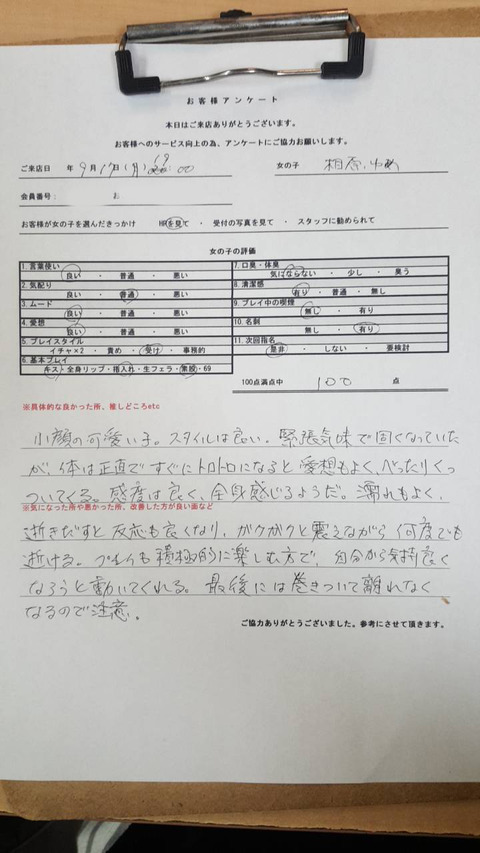 お客様アンケート
本日はご来店ありがとうございます。
お客様へのサービス向上の為、アンケートにご協力お願いします。
ご来店日 年 9月17日(月) 19 00 女の子 相原ゆめ
会員番号: お
お客様が女の子を選んだきっかけ HPを見て ・ 受付の写真を見て ・ スタッフに勧められて
女の子の評価
1.言葉使い
良い ・ 普通 ・ 悪い
2.気配り
良い ・ 普通 ・ 悪い
3.ムード
良い ・ 普通 ・ 悪い
4.愛想
良い ・ 普通 ・ 悪い
5.プレイスタイル
イチャ×2 ・ 責め ・ 受け ・ 事務的
6.基本プレイ
キス・全身リップ・指入れ・生フェラ・素股・69
7.口臭・体臭
気にならない ・ 少し ・ 臭う
8.清潔感
有り ・ 普通 ・ 無し
9.プレイ中の喫煙
無し ・ 有り
10.名刺
無し ・ 有り
11.次回指名
是非 ・ しない ・ 要検討
100点満点中 100 点
※具体的な良かった所、推しどころetc
小顔の可愛い子。スタイルは良い。緊張気味で固くなっていた
が、体は正直ですぐにトロトロになると愛想もよく、べったりくっ
ついてくる。感度は良く、全身感じるようだ。濡れもよく、
※気になった所や悪かった所、改善した方が良い面など
逝きだすと反応も良くなり、ガクガクと震えながら何度でも
逝ける。プレイも積極的に楽しむ方で、自分から気持良く
なろうと動いてくれる。最後には巻きついて離れなく
なるので注意。
ご協力ありがとうございました。参考にさせて頂きます。